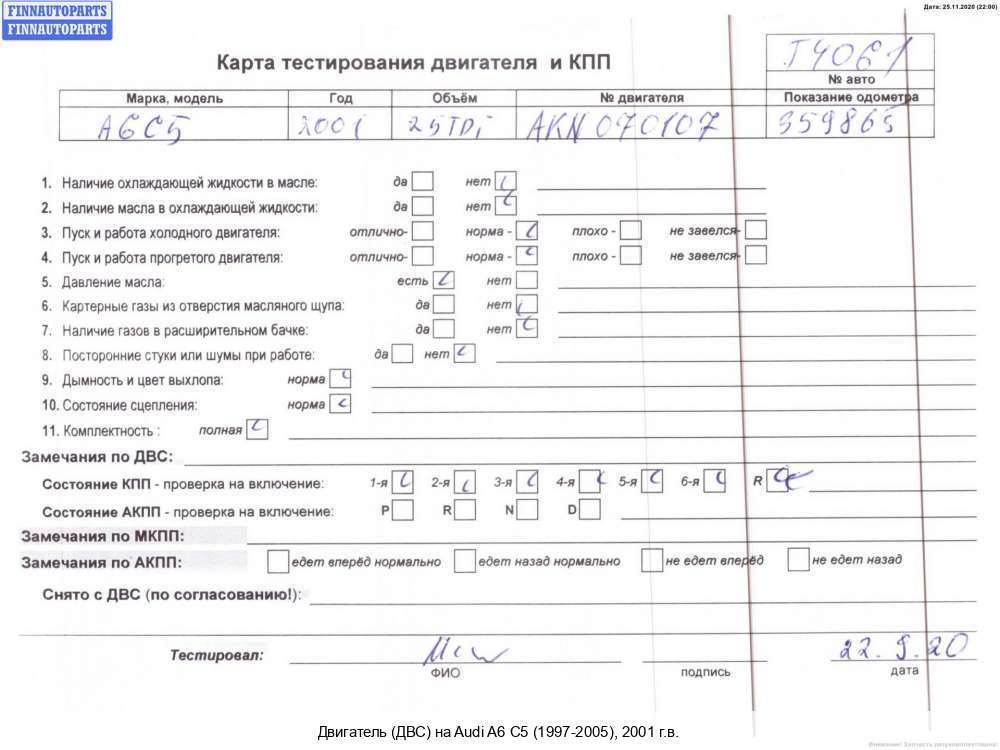 FINNAUTOPARTS
FINNAUTOPARTS
Дата: 25.11.2020 (22:00)
Карта тестирования двигателя и КПП
T4061
№ авто
Марка, модель Год Объём № двигателя Показание одометра
A6C5 2001 25TDi AKN 070107 359865
1. Наличие охлаждающей жидкости в масле: да нет
2. Наличие масла в охлаждающей жидкости: да нет
3. Пуск и работа холодного двигателя: отлично- норма - плохо - не завелся-
4. Пуск и работа прогретого двигателя: отлично- норма - плохо - не завелся-
5. Давление масла: есть нет
6. Картерные газы из отверстия масляного щупа: да нет
7. Наличие газов в расширительном бачке: да нет
8. Посторонние стуки или шумы при работе: да нет
9. Дымность и цвет выхлопа: норма
10. Состояние сцепления: норма
11. Комплектность : полная
Замечания по ДВС:
Состояние КПП - проверка на включение: 1-я 2-я 3-я 4-я 5-я 6-я R
Состояние АКПП - проверка на включение: P R N D
Замечания по МКПП:
Замечания по АКПП: едет вперёд нормально едет назад нормально не едет вперёд не едет назад
Снято с ДВС (по согласованию!):
Тестировал: 22.9.20
ФИО подпись дата
Двигатель (ДВС) на Audi A6 C5 (1997-2005), 2001 г.в.